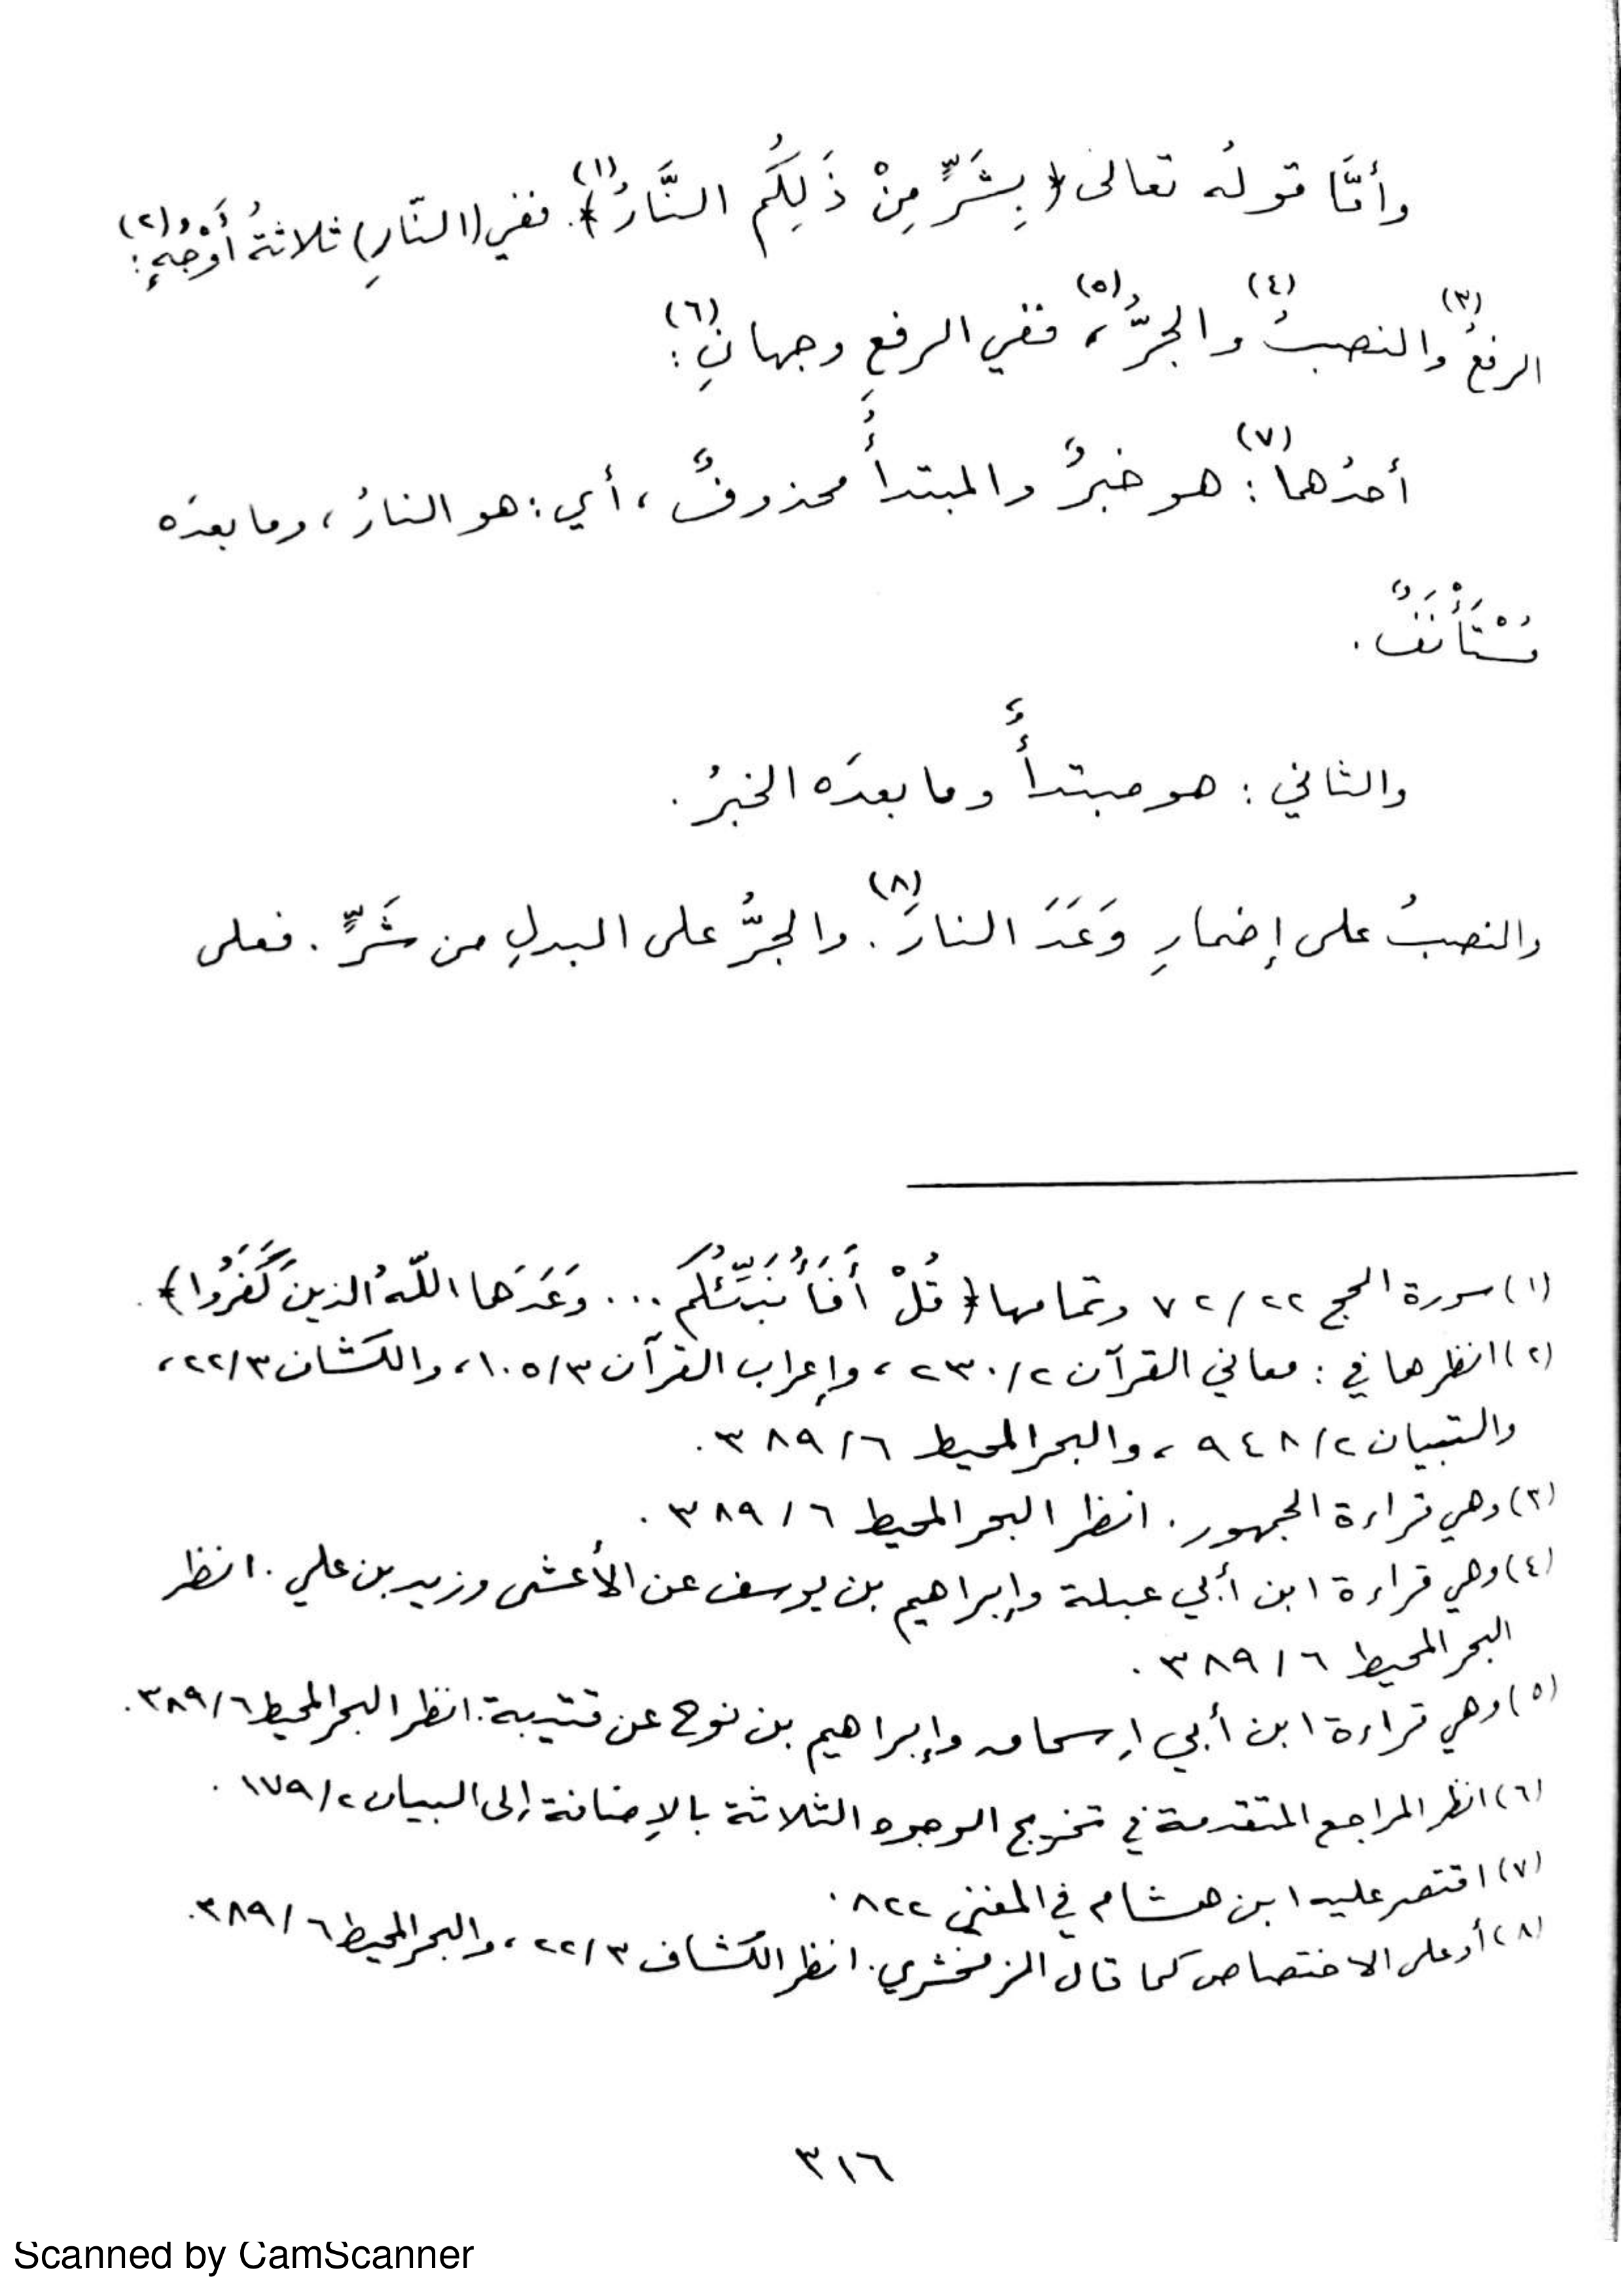 وأمَّا قولُه تعالى ﴿بِشَرٍّ مِنْ ذَلِكُمُ النَّارُ﴾(١). ففي (النّارِ) ثلاثةُ أَوْجُهٍ(٢):
الرفعُ(٣) والنصبُ(٤) والجرُّ(٥)، ففي الرفعِ وجهانِ(٦):
أحدُهما(٧): هو خبرٌ والمبتدأُ محذوفٌ، أي: هو النارُ، وما بعدَه
مُسْتَأْنَفٌ.
والثاني: هو مبتدأٌ وما بعدَه الخبرُ.
والنصبُ على إضمارِ وَعَدَ النارَ(٨). والجرُّ على البدلِ من شَرٍّ. فعلى
(١) سورة الحج ٢٢/٧٢ وتمامها ﴿قُلْ أَفَأُنَبِّئُكُم ... وَعَدَها اللّهُ الذينَ كَفَرُوا﴾.
(٢) انظرها في: معاني القرآن ٢/٢٣٠، وإعراب القرآن ٣/١٠٥، والكشاف ٣/٢٢،
والتبيان ٢/٩٤٨، والبحر المحيط ٦/٣٨٩.
(٣) وهي قراءة الجمهور. انظر البحر المحيط ٦/٣٨٩.
(٤) وهي قراءة ابن أبي عبلة وإبراهيم بن يوسف عن الأعشى وزيد بن علي. انظر
البحر المحيط ٦/٣٨٩.
(٥) وهي قراءة ابن أبي إسحاق وإبراهيم بن نوح عن قتيبة. انظر البحر المحيط ٦/٣٨٩.
(٦) انظر المراجع المتقدمة في تخريج الوجوه الثلاثة بالإضافة إلى البيان ٢/١٧٩.
(٧) اقتصر عليه ابن هشام في المغني ٨٢٢.
(٨) أو على الاختصاص كما قال الزمخشري. انظر الكشاف ٣/٢٢، والبحر المحيط ٦/٣٨٩.
٣١٦
Scanned by CamScanner